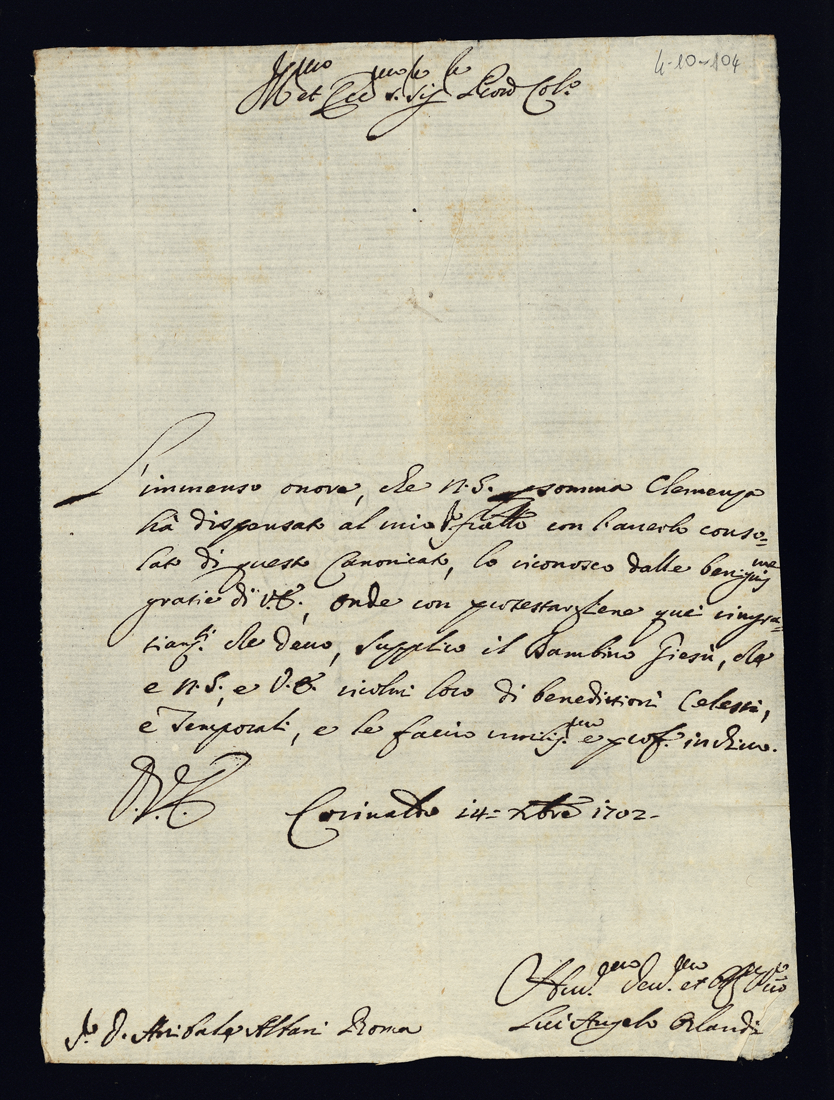 4-10-104
Ill.mo et Ecc.mo Sig.re P.ron Col.mo
L'immenso onore, che N.S. somma Clemenza
hà dispensato al mio fratello con l'averlo conso=
lato di questo Canonicato, lo riconosco dalle benig.me
gratie di V.E., onde con protestargliene quei ringra=
tiam.ti che devo, supplico il Bambino Giesù, che
e N.S., e V.E. ricolmi loro di benedittioni Celesti,
e Temporali, e le faccio umilis.mo e prof. inchino.
D.V.E. Corinaldo 14= Xbre 1702-
Hum.mo Dev.mo et
S.r D. Anibale Albani Roma Angelo Orlandi